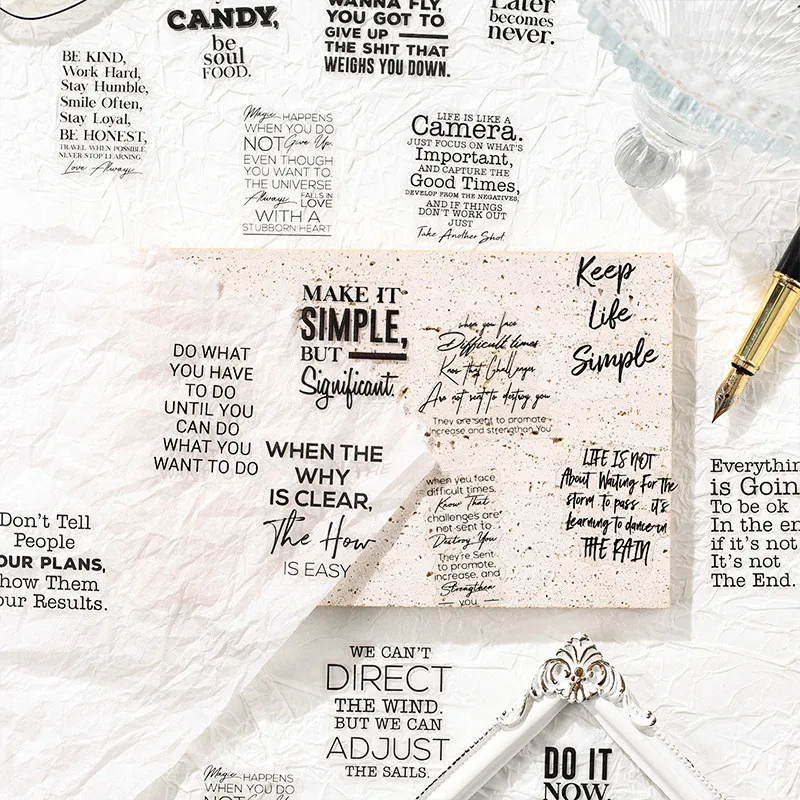 CANDY,
be
soul
FOOD.
WANNA FLY,
YOU GOT TO
GIVE UP
THE SHIT THAT
WEIGHS YOU DOWN.
Later
becomes
never.
BE KIND,
Work Hard,
Stay Humble,
Smile Often,
Stay Loyal,
BE HONEST,
TRAVEL WHEN POSSIBLE,
NEVER STOP LEARNING,
Love Always
Magic HAPPENS
WHEN YOU DO
NOT Give Up,
EVEN THOUGH
YOU WANT TO.
THE UNIVERSE
Always FALLS IN
LOVE
WITH A
STUBBORN HEART
LIFE IS LIKE A
Camera.
JUST FOCUS ON WHAT'S
Important,
AND CAPTURE THE
Good Times,
DEVELOP FROM THE NEGATIVES,
AND IF THINGS
DON'T WORK OUT
JUST
Take Another Shot.
MAKE IT
SIMPLE,
BUT
Significant.
when you face
Difficult times
Know that Challenges
Are not sent to destroy you
They are sent to promote
increase and strengthen You
Keep
Life
Simple
DO WHAT
YOU HAVE
TO DO
UNTIL YOU
CAN DO
WHAT YOU
WANT TO DO
WHEN THE
WHY
IS CLEAR,
The How
IS EASY
when you face
difficult times,
Know That
challenges are
not sent to
Destroy You
They're Sent
to promote,
increase, and
Strengthen
you
LIFE IS NOT
About Waiting For the
storm to pass.. it's
learning to dance in
THE RAIN
Everythin
is Goin
To be ok
In the en
if it's not
It's not
The End.
Don't Tell
People
OUR PLANS,
how Them
our Results.
WE CAN'T
DIRECT
THE WIND.
BUT WE CAN
ADJUST
THE SAILS.
Magic HAPPENS
WHEN YOU DO
NOT Give Up
DO IT
NOW.